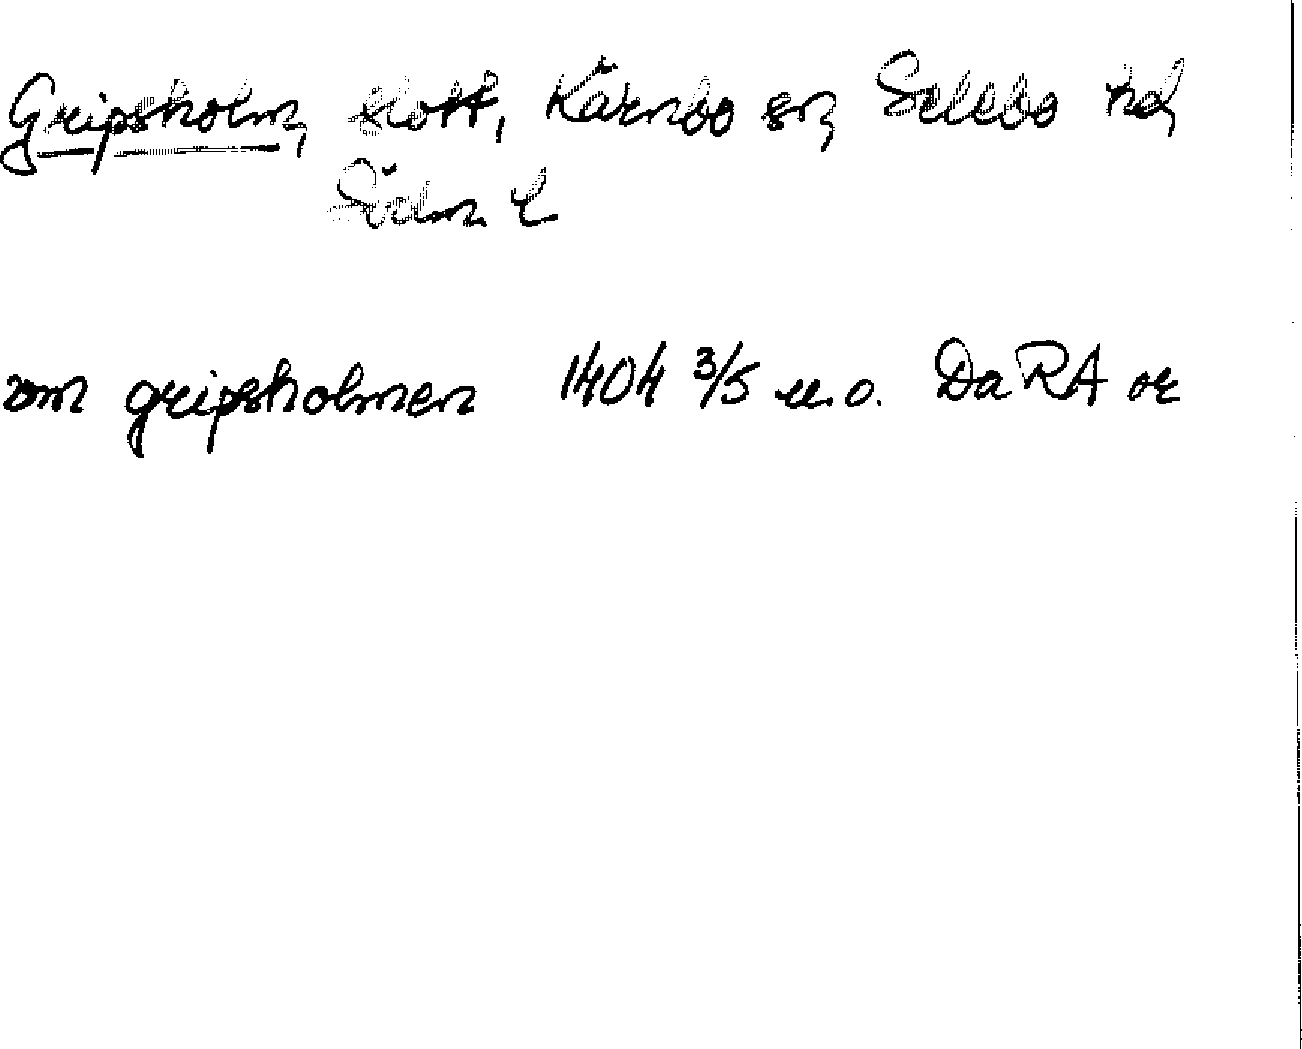 Gripsholm, slott, Kärnbo sn, Selebo hd,
Södm l
om gripsholmen 1404 3/5 u.o. DaRA or